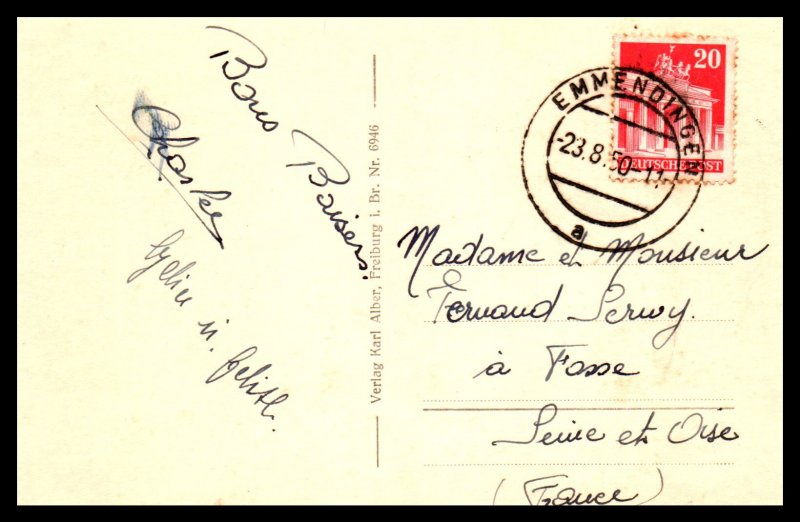 Bons Baisers.
Verlag Karl Alber, Freiburg i. Br. Nr. 6946
20
DEUTSCHE POST
EMMENDINGEN
-23.8.50-11
a
Madame et Monsieur
Fernand Serwy.
à Fosse
Seine et Oise
(France)